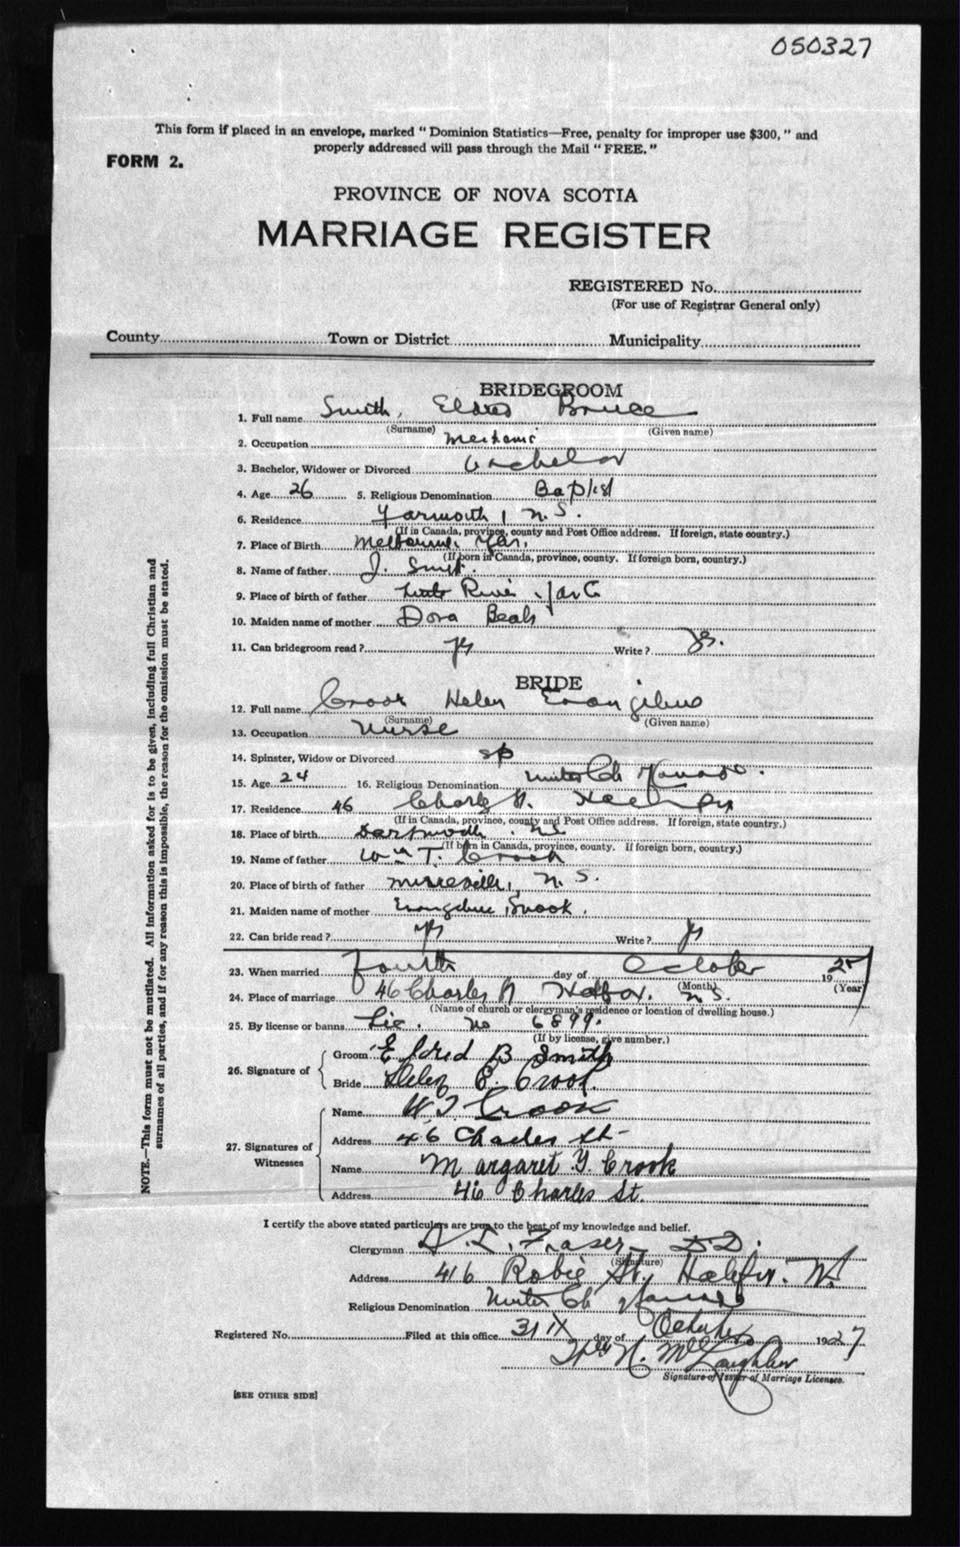 050327
This form if placed in an envelope, marked "Dominion Statistics—Free, penalty for improper use $300," and
properly addressed will pass through the Mail "FREE."
FORM 2.
PROVINCE OF NOVA SCOTIA
MARRIAGE REGISTER
REGISTERED No.
(For use of Registrar General only)
County Town or District Municipality
BRIDEGROOM
1. Full name Smith, Eldred Bruce
(Surname) (Given name)
2. Occupation Mechanic
3. Bachelor, Widower or Divorced Bachelor
4. Age 26 5. Religious Denomination Baptist
6. Residence Yarmouth, N.S.
(If in Canada, province, county and Post Office address. If foreign, state country.)
7. Place of Birth Melbourne, Yar.
(If born in Canada, province, county. If foreign born, country.)
8. Name of father J. Smith
9. Place of birth of father River
10. Maiden name of mother Dora Beals
11. Can bridegroom read? Yes Write? Yes.
BRIDE
12. Full name Crook Helen Evangeline
(Surname) (Given name)
13. Occupation Nurse
14. Spinster, Widow or Divorced sp
15. Age 24 16. Religious Denomination United Ch Canada.
17. Residence 46 Charles St. Halifax
(If in Canada, province, county and Post Office address. If foreign, state country.)
18. Place of birth Dartmouth. NS
(If born in Canada, province, county. If foreign born, country.)
19. Name of father Wm T. Crook
20. Place of birth of father N. S.
21. Maiden name of mother Evangeline Snook.
22. Can bride read? Yes Write? Yes
23. When married Fourth day of October 1927
(Month) (Year)
24. Place of marriage 46 Charles St Halifax. N.S.
(Name of church or clergyman's residence or location of dwelling house.)
25. By license or banns Lic. No 6899.
(If by license, give number.)
26. Signature of
Groom Eldred B Smith
Bride Helen E. Crook.
27. Signatures of Witnesses
Name W. T. Crook
Address 46 Charles St-
Name Margaret Y. Crook
Address 46 Charles St.
I certify the above stated particulars are true to the best of my knowledge and belief.
Clergyman Fraser D.D.
(Signature)
Address 416 Robie St, Halifax. NS
Religious Denomination United Ch Canada
Registered No. Filed at this office 31 day of October 1927
N. McLaughlin
Signature of Issuer of Marriage Licenses.
[SEE OTHER SIDE]
NOTE.—This form must not be mutilated. All information asked for is to be given, including full Christian and
surnames of all parties, and if for any reason this is impossible, the reason for the omission must be stated.